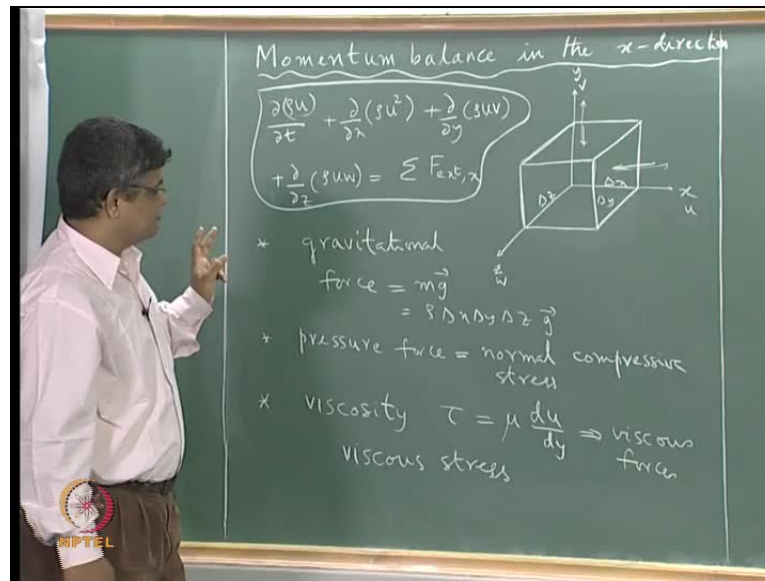 Momentum balance in the x-direction
∂(ρu)/∂t + ∂/∂x (ρu²) + ∂/∂y (ρuv)
+ ∂/∂z (ρuw) = Σ F_ext,x
y
v
Δx
Δz
Δy
x
u
z
w
* gravitational
force = mg⃗
= ρ Δx Δy Δz g⃗
* pressure force = normal compressive
stress
* viscosity τ = μ du/dy ⇒ viscous
viscous stress forces
NPTEL